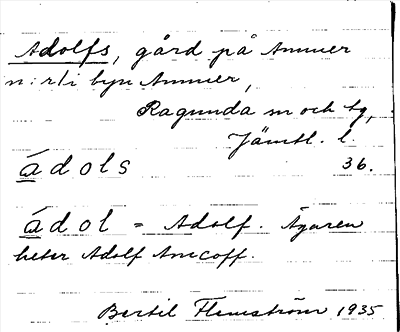 Adolfs, gård på Ammer
n:r 1 i byn Ammer,
Ragunda sn och tg,
Jämtl. l.
ádols 36.
ádol = Adolf. Ägaren
heter Adolf Amcoff.
Bertil Flemström 1935